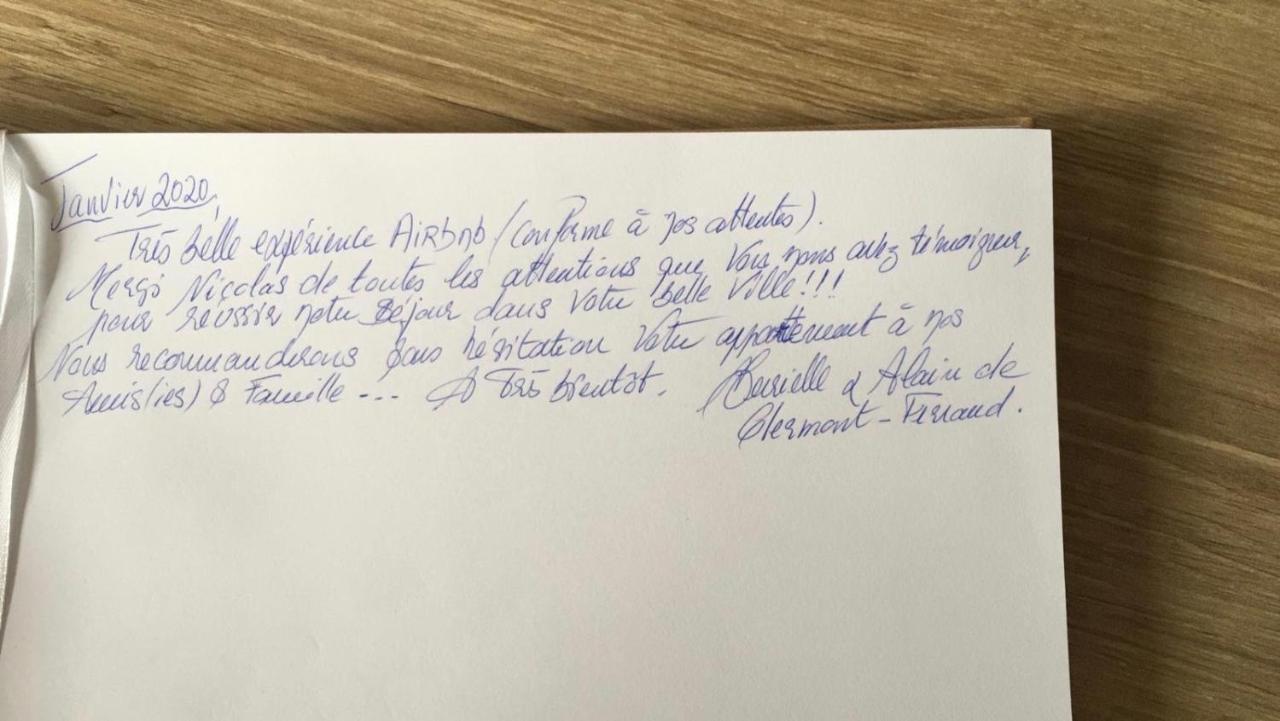 Janvier 2020,
Très belle expérience AirBnb (conforme à nos attentes).
Merci Nicolas de toutes les attentions que vous nous avez témoigner,
pour réussir notre séjour dans votre belle ville!!!
Nous recommanderons sans hésitation votre appartement à nos
Amis(ies) & Famille --- A Très bientôt. & Alain de
Clermont-Ferrand.